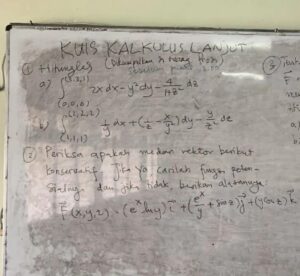 KUIS KALKULUS LANJUT
① Hitunglah (Dikumpulkan
a) ∫ (0,0,0) 2x dx - y² dy - 4/(1+z²) dz
b) ∫ (1,1,1) (1,2,2) 1/y dx + (1/z - x/y²) dy - y/z² dz
② Periksa apakah medan vektor berikut
konservatif. Jika ya carilah fungsi poten-
sialnya dan jika tidak, berikan alasannya.
F(x,y,z) = (e^x ln y) i + (e^x/y + sin z) j + (y cos z) k
③
F